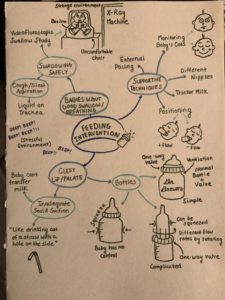 Strange environment
X-Ray
Machine
Videofluoroscopic
Swallow Study
Uncomfortable
chair
Swallowing
Safely
Cough/Silent
Aspiration
Liquid on
Trachea
BEEP! BEEP!
BEEP! BEEP!!!
(Stressful
Environment)
BEEP!
BEEP!
Babies want
good swallow/
breathing
Feeding
Intervention
Supportive
Techniques
External
Pacing
Monitoring
Baby's Cues
Different
Nipples
Thicker Milk
Positioning
+ Flow
- Flow
Cleft
Lip/Palate
Baby can't
transfer
milk
Inadequate
Seal & Suction
"Like drinking out
of a straw with a
hole on the side"
Bottles
Squeeze
Baby has no
Control
One-way valve
Ventilation
Normal
Bottle
Valve
Simple
Can be
squeezed
Different flow
rates by rotating
One-way valve
Complicated